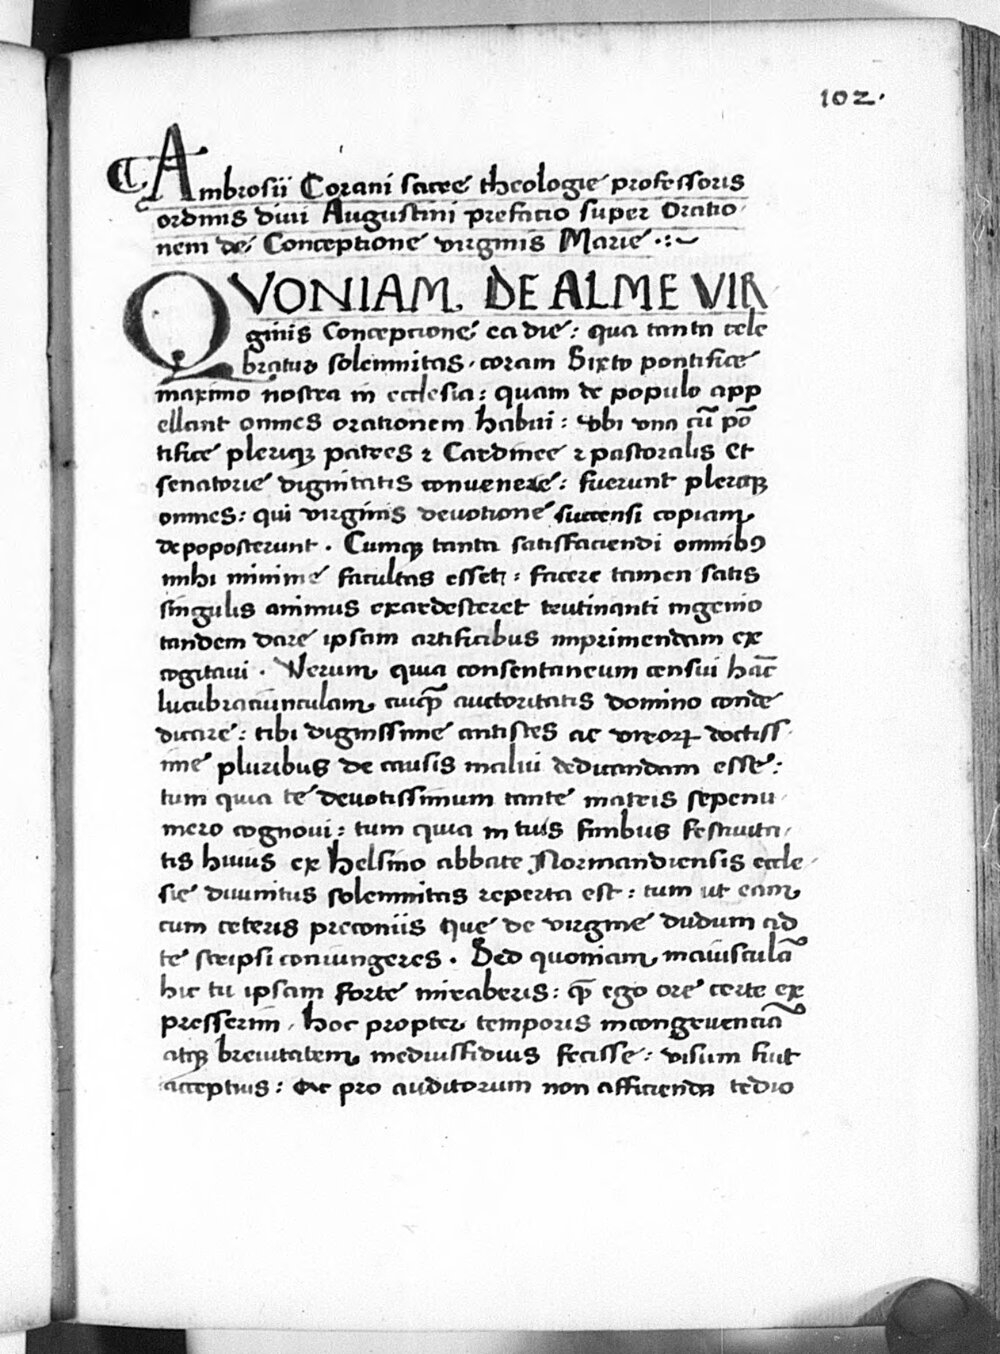 102.
Ambrosii Corani sacre theologie professoris
ordinis divi Augustini prefatio super Oratio
nem de Conceptione virginis Marie .:~
QVONIAM DE ALME VIR
ginis Conceptione ea die: qua tanta cele
bratur solemnitas, coram Sixto pontifice
maximo nostra in ecclesia: quam de populo app
ellant omnes orationem habui: vbi vna cū pō
tifice pleriqꝫ patres ⁊ Cardinee ⁊ pastoralis et
senatorie dignitatis convenere: fuerunt pleriqꝫ
omnes: qui virginis devotione succensi copiam
depoposcerunt. Cumqꝫ tanta satisfaciendi omnibꝰ
mihi minime facultas esset: facere tamen satis
singulis animus exardesceret trutinanti ingenio
tandem dare ipsam artificibus imprimendam ex
cogitaui. Verum quia consentaneum censui hāc
lucubraciunculam cuiqꝫ auctoritatis domino conde
dicare: tibi dignissime antistes ac viroꝝ doctiss
ime pluribus de causis malui dedicandam esse:
tum quia te devotissimum tante matris sepenu
mero cognoui: tum quia in tuis finibus festiuita
tis huius ex helsino abbate Normandiensis eccle
sie diuinitus solemnitas reperta est: tum ut eam
cum ceteris preconiis que de virgine dudum ad
te scripsi coniungeres. Sed quoniam maiusculā
hic tu ipsam forte miraberis: q̄ ego ore certe ex
presserim, hoc propter temporis incongruenciā
atqꝫ breuitatem mediusfidius fecisse: visum fuit
acceptius: Ac pro auditorum non afficienda tedio